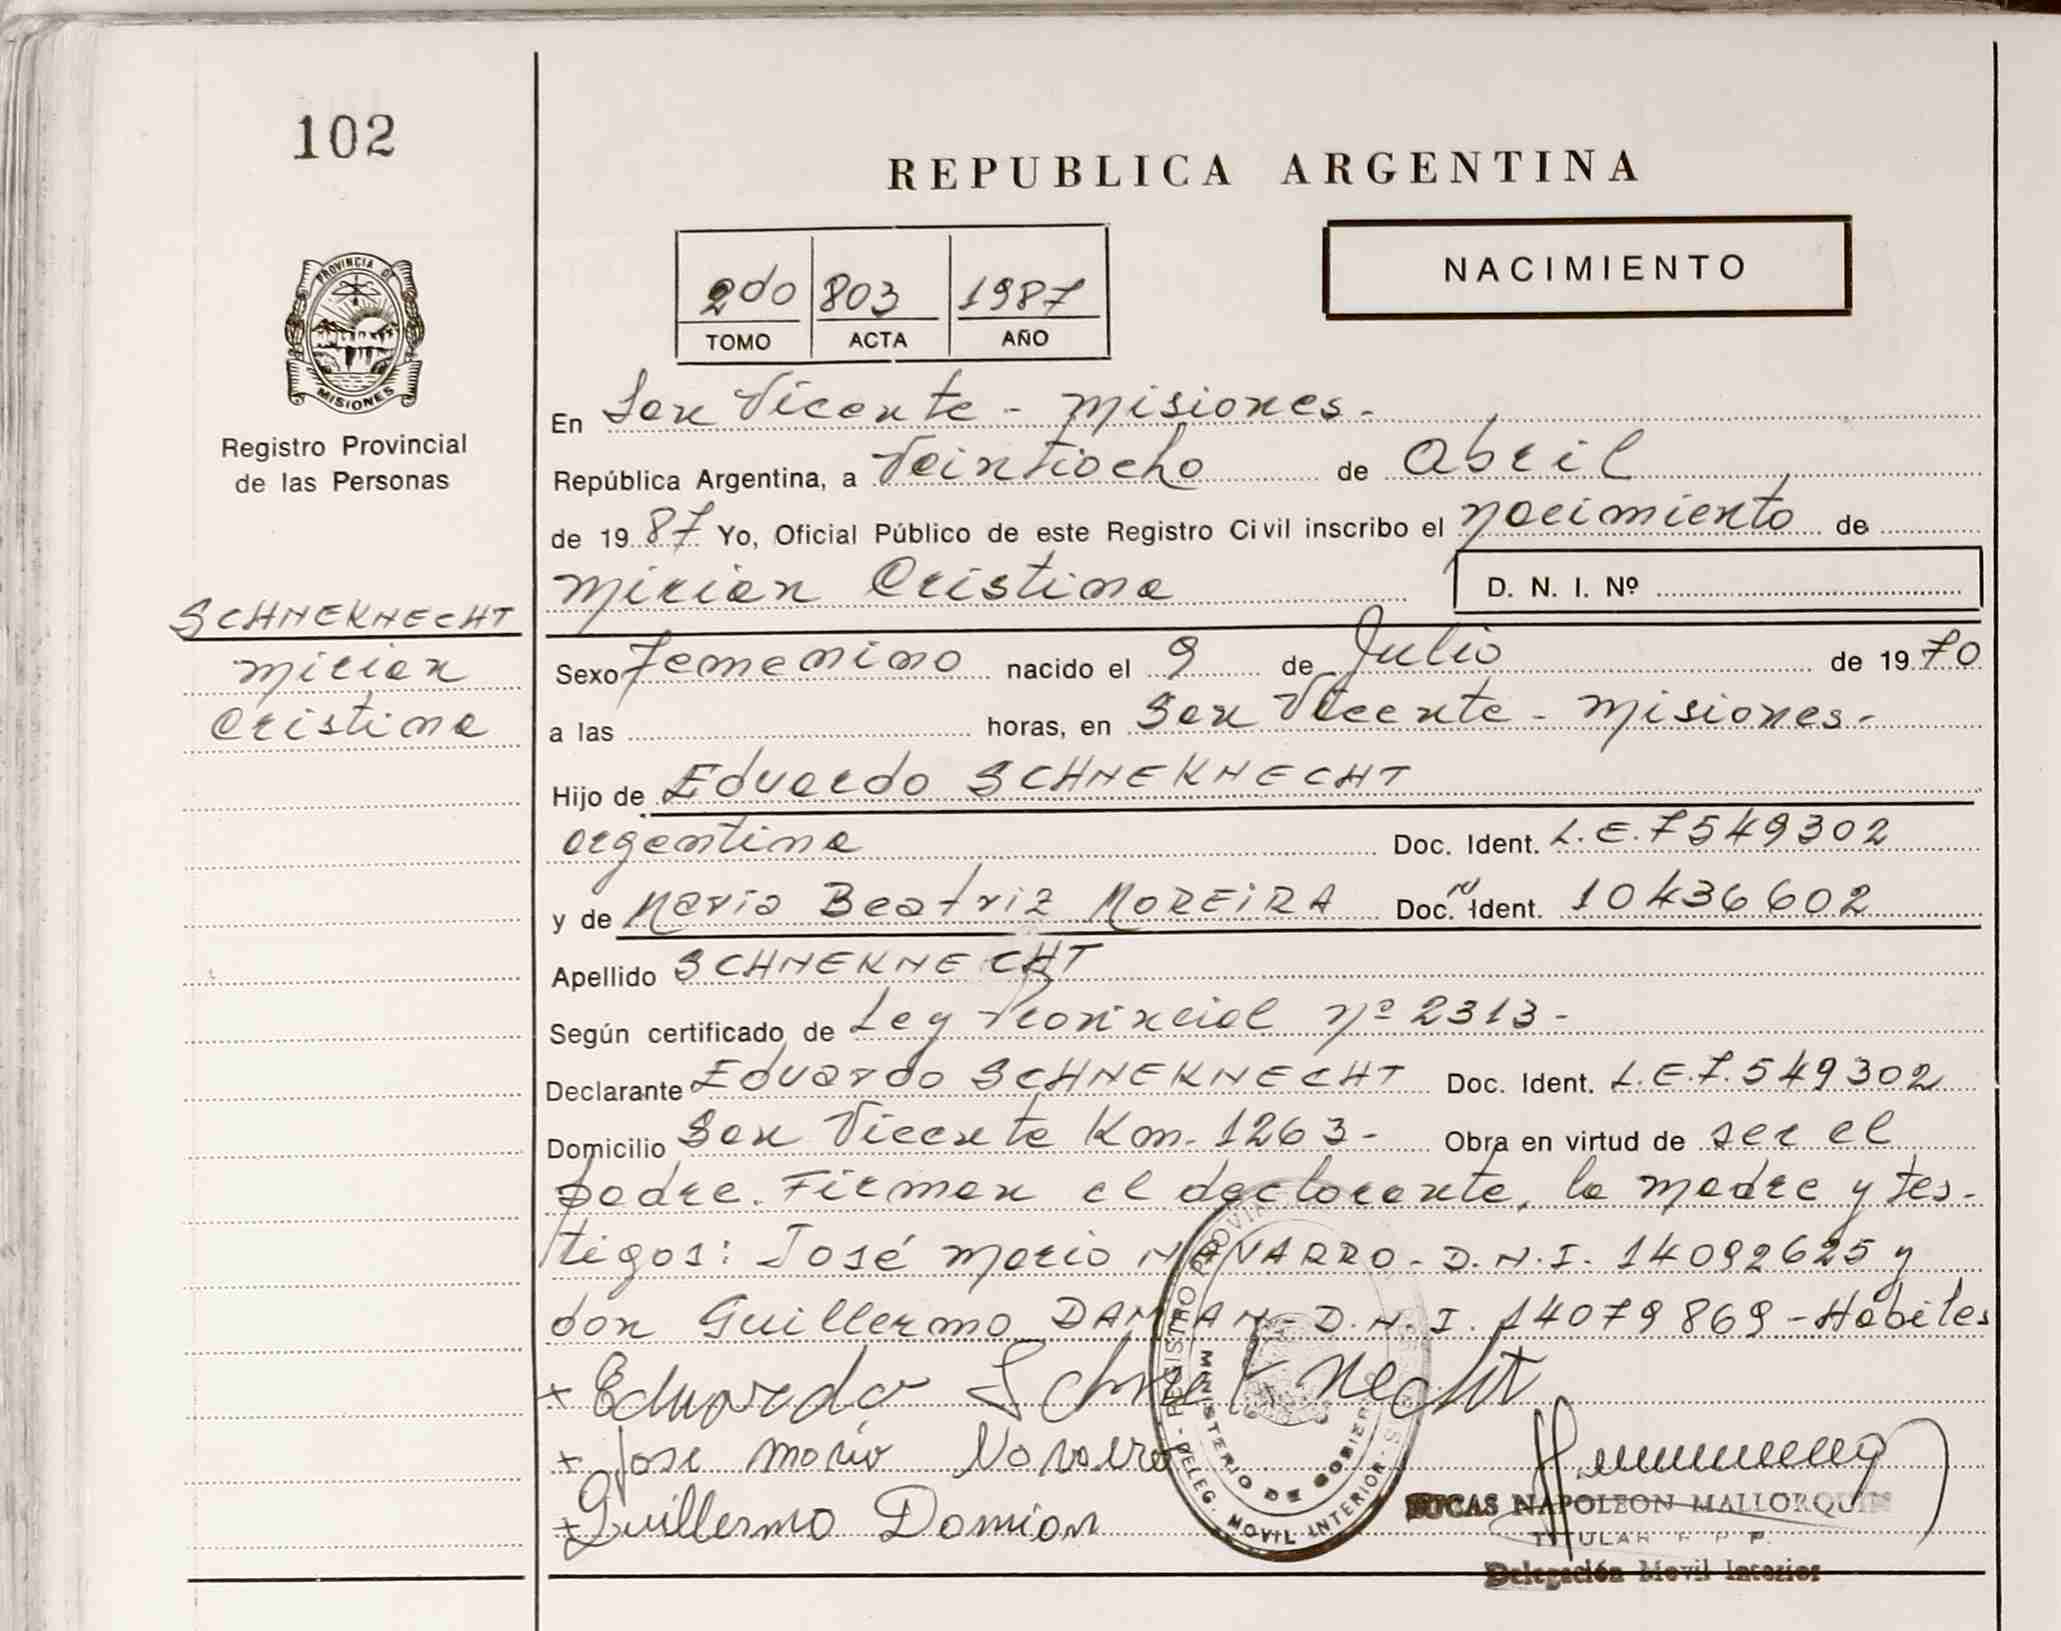 102
REPUBLICA ARGENTINA
NACIMIENTO
2do 803 1987
TOMO ACTA AÑO
PROVINCIA DE
MISIONES
Registro Provincial
de las Personas
SCHNEKNECHT
Mirian
Cristina
En San Vicente - Misiones -
República Argentina, a Veintiocho de Abril
de 1987 Yo, Oficial Público de este Registro Civil inscribo el nacimiento de
Mirian Cristina D. N. I. Nº
Sexo Femenino nacido el 9 de Julio de 1970
a las horas, en San Vicente - Misiones -
Hijo de Eduardo SCHNEKNECHT
argentina Doc. Ident. L.E. 7549302
y de Maria Beatriz MOREIRA Doc. Ident. 10436602
Apellido SCHNEKNECHT
Según certificado de Ley Provincial nº 2313 -
Declarante Eduardo SCHNEKNECHT Doc. Ident. L.E. 7.549302
Domicilio San Vicente Km. 1263 - Obra en virtud de ser el
padre. Firman el declarante, la madre y tes-
tigos: José Mario NAVARRO - D.N.I. 14092625 y
don Guillermo DAMIAN - D.N.I. 14079869 - Habiles
x Eduardo Schneknecht
x Jose Mario Navarro
x Guillermo Damian
REGISTRO PROVINCIAL
MINISTERIO DE GOBIERNO
DELEG. MOVIL INTERIOR
LUCAS NAPOLEON MALLORQUIN
TITULAR R P P.
Delegación Movil Interior